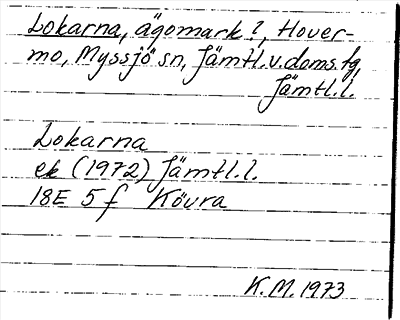 Lokarna, ägomark?, Hover-
mo, Myssjö sn, Jämtl.v.doms.tg,
Jämtl.l.
Lokarna
ek (1972) Jämtl.l.
18E 5f Kövra
K.M. 1973